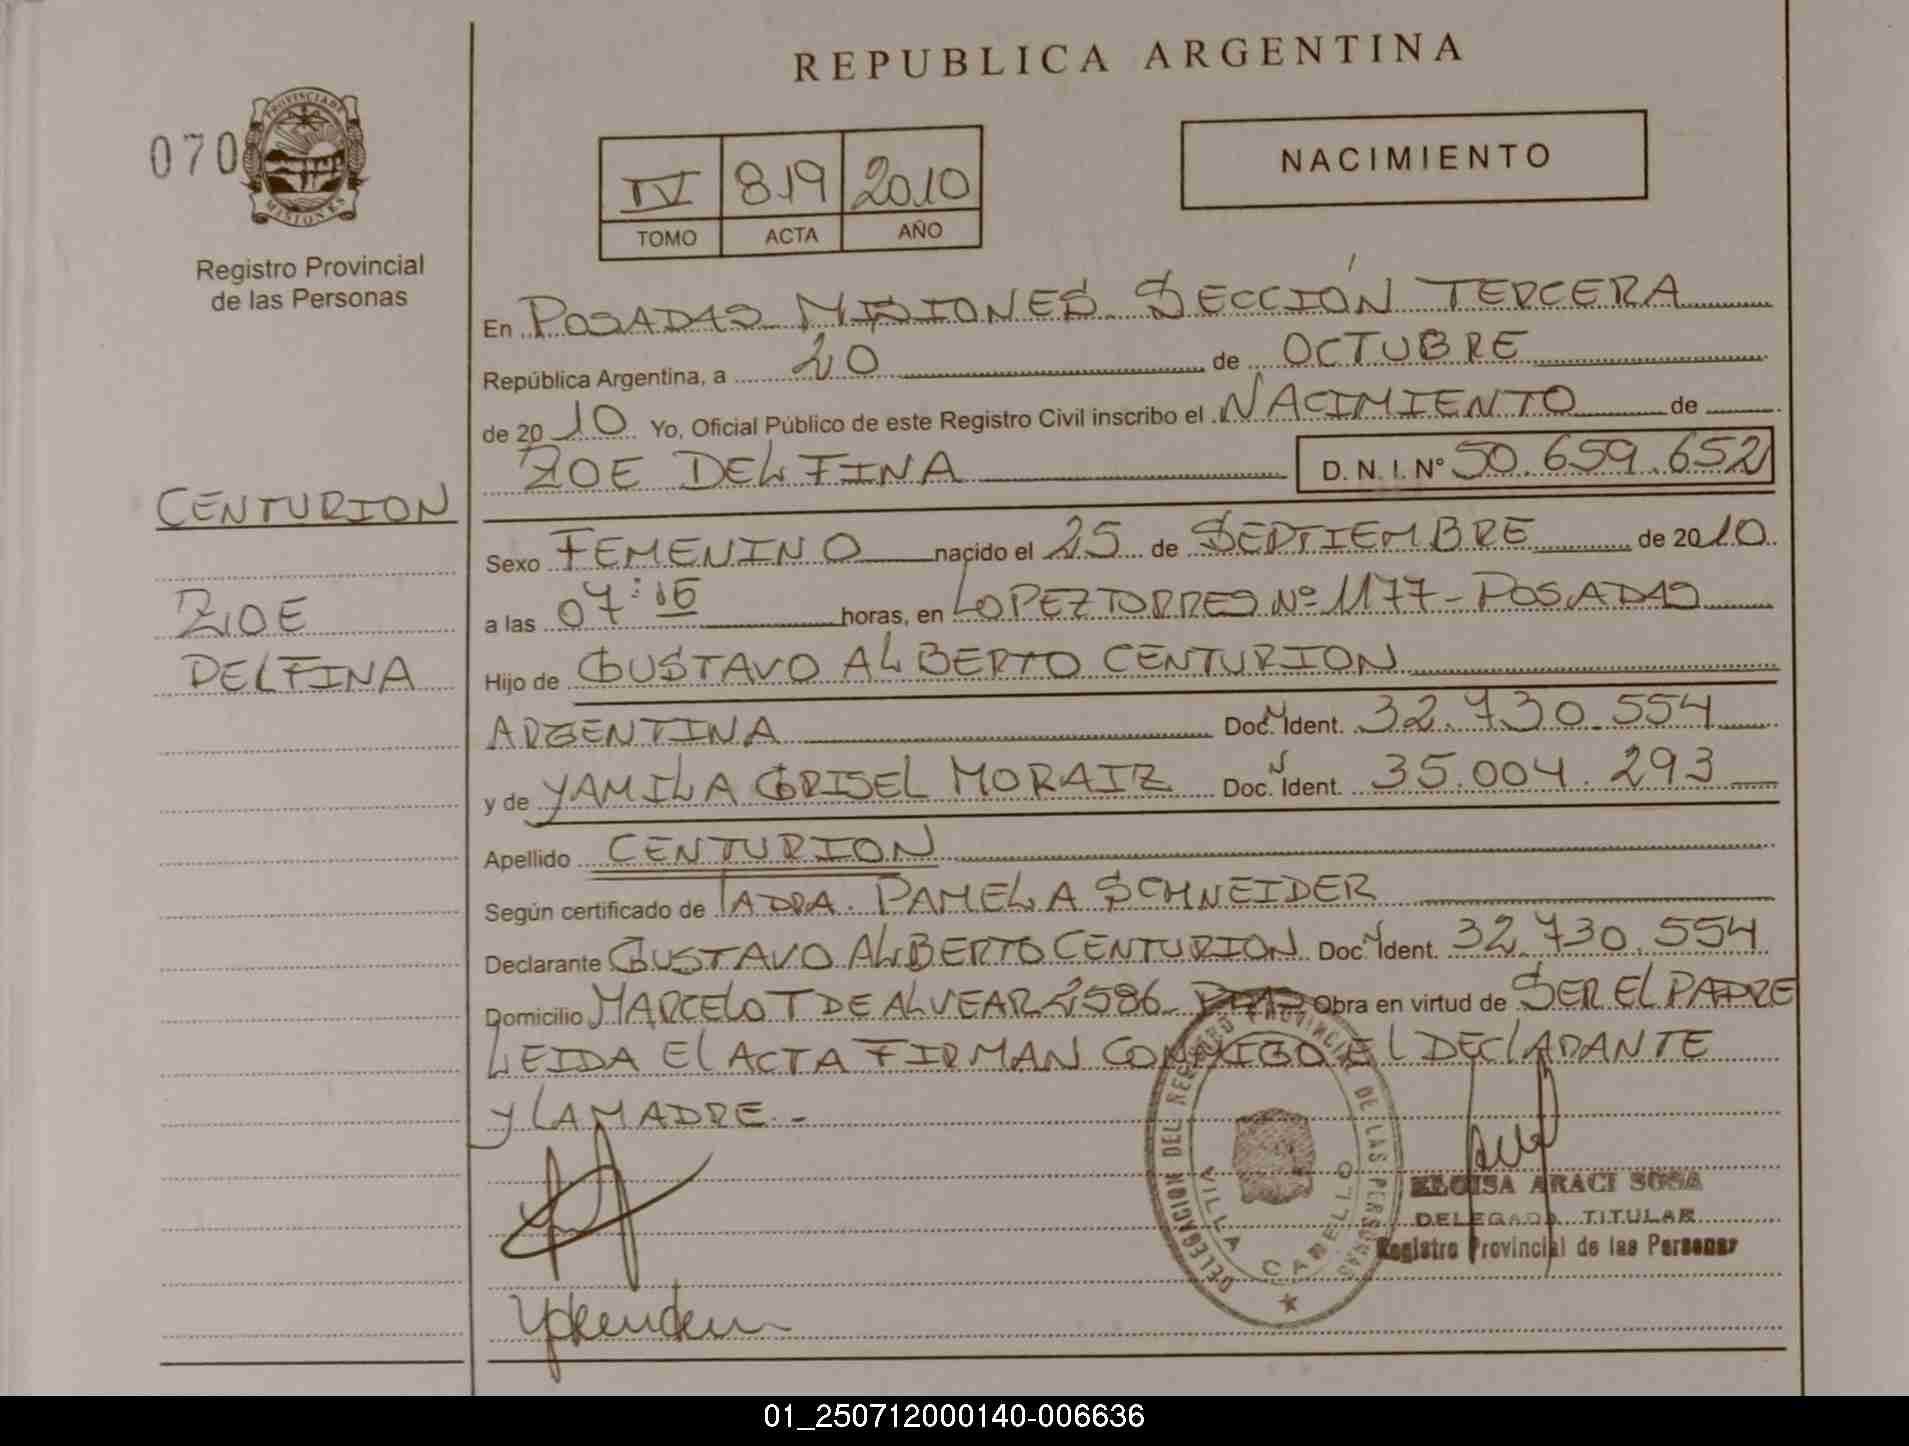 REPUBLICA ARGENTINA
070
PROVINCIA DE MISIONES
Registro Provincial
de las Personas
NACIMIENTO
IV 819 2010
TOMO ACTA AÑO
En POSADAS MISIONES SECCIÓN TERCERA
República Argentina, a 20 de OCTUBRE
de 2010 Yo, Oficial Público de este Registro Civil inscribo el NACIMIENTO de
ZOE DELFINA D. N. I. N° 50.659.652
CENTURION
ZOE
DELFINA
Sexo FEMENINO nacido el 25 de SEPTIEMBRE de 2010
a las 07:16 horas, en LOPEZ TORRES Nº 1177-POSADAS
Hijo de GUSTAVO ALBERTO CENTURION
ARGENTINA Doc. N Ident. 32.730.554
y de YAMILA GRISEL MORAIZ Doc. N Ident. 35.004.293
Apellido CENTURION
Según certificado de LA DRA. PAMELA SCHNEIDER
Declarante GUSTAVO ALBERTO CENTURION Doc. N Ident. 32.730.554
Domicilio MARCELO T DE ALVEAR 2586 PDAS Obra en virtud de SER EL PADRE
LEIDA EL ACTA FIRMAN CONMIGO EL DECLARANTE
Y LA MADRE.-
DELEGACION DEL REGISTRO PROVINCIAL DE LAS PERSONAS
VILLA CABELLO
ELOISA ARACI SOSA
DELEGADA TITULAR
Registro Provincial de las Personas
01_250712000140-006636